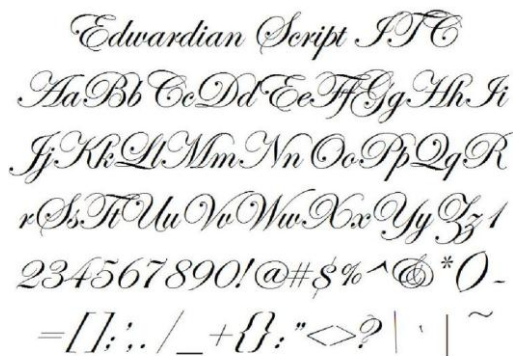 Edwardian Script ITC
AaBbCcDdEeFfGgHhIi
JjKkLlMmNnOoPpQqR
rSsTtUuVvWwXxYyZz1
234567890!@#$%^&*()-
=[];',./_+{}:"<>?|`|~